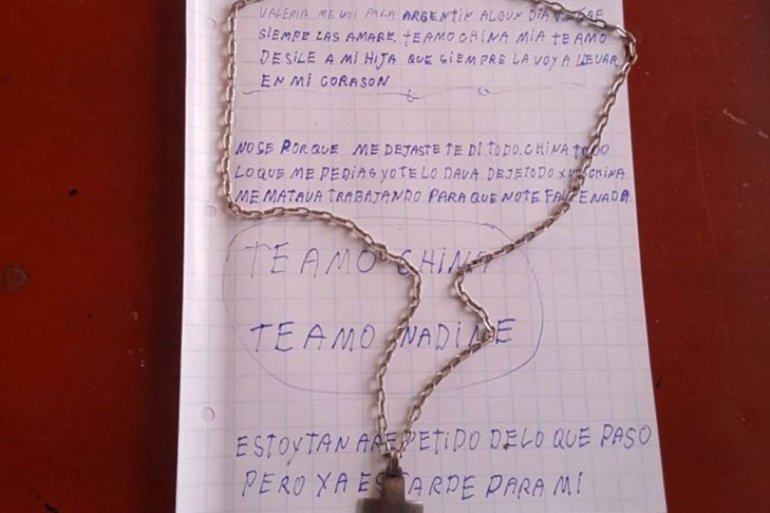 VALERIA ME VOI PALA ARGENTIN ALGUN DIA
SIEMPE LAS AMARE. TEAMO CHINA MIA TE AMO
DESILE A MI HIJA QUE SIEMPRE LA VOY A LLEVAR
EN MI CORASON
NOSE PORQUE ME DEJASTE TE DI TODO. CHINA TODO
LO QUE ME PEDIAS YO TE LO DAVA DEJETODO X CHINA
ME MATAVA TRABAJANDO PARA QUE NOTE FALTE NADA
TE AMO CHINA
TE AMO NADINE
ESTOY TAN AREPETIDO DELO QUE PASO
PERO YA ES TARDE PARA MI